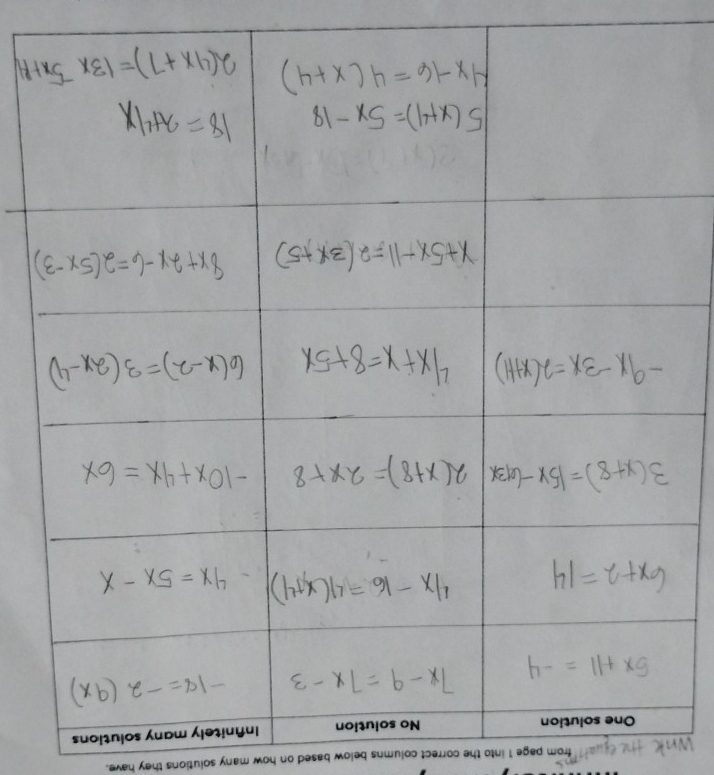 Write the equations from page 1 into the correct columns below based on how many solutions they have.
One solution No solution Infinitely many solutions
5x + 11 = -4 7x - 9 = 7x - 3 -18 = -2 (9x)
6x + 2 = 14 4x - 16 = 4(x+4) 4x = 5x - x
3(x+8) = 15x - 2(x+8) = 2x + 8 -10x + 4x = 6x
-9x - 3x = 2(x+11) 4x + x = 8 + 5x 6(x-2) = 3(2x-4)
x + 5x + 11 = 2(3x+5) 8x + 2x - 6 = 2(5x-3)
5(x+1) = 5x - 18 18 = 2+4x
4x - 16 = 4(x+4) 2(4x+7) = 13x - 5x+14